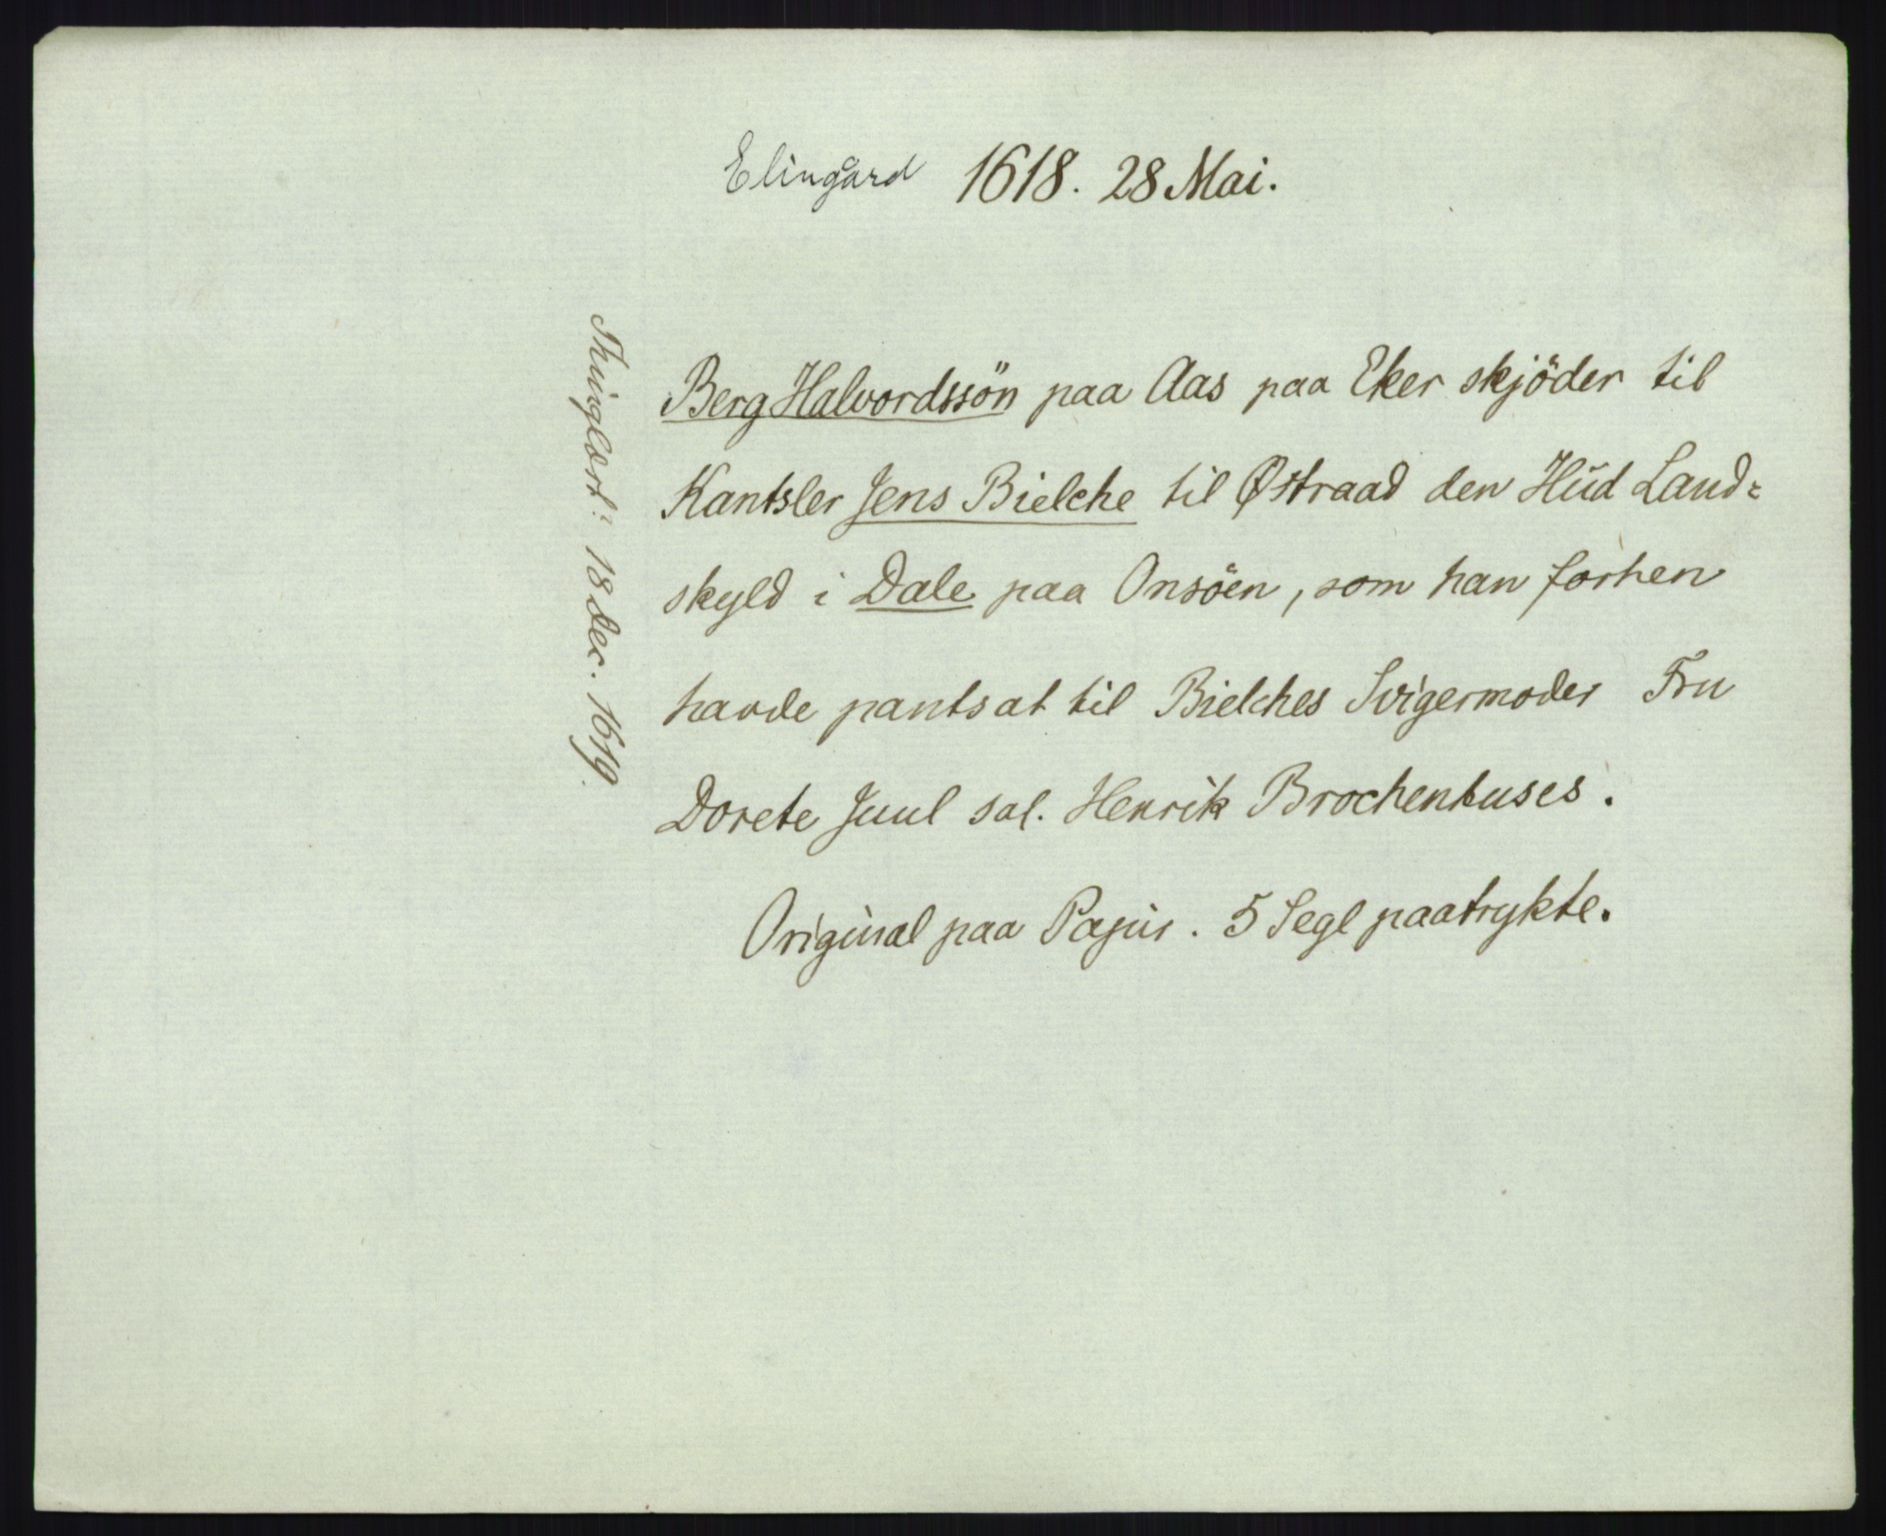 Elingård 1618. 28 Mai.
Berg Halvordssön paa Aas paa Eker skjöder til
Kantsler Jens Bielche til Østraad den Hud Land-
skyld i Dale paa Onsöen, som han forhen
havde pantsat til Bielches Svigermoder Fru
Dorete Juul sal. Henrik Brochenhuses.
Original paa Papir. 5 Segl paatrykte.
Thinglært: 18 Dec. 1619.